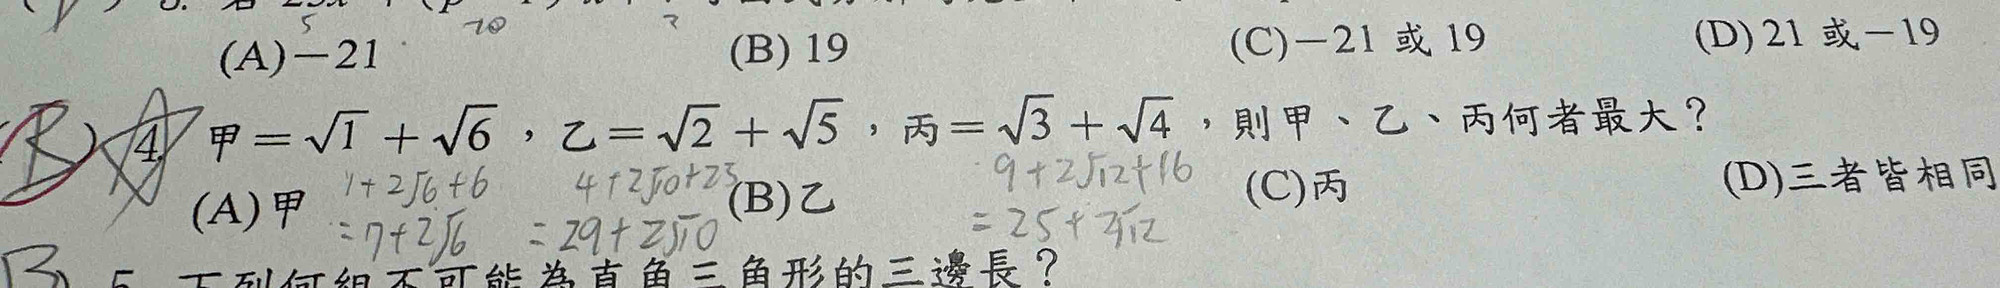 (A)－21 (B) 19 (C)－21 或 19 (D) 21 或－19
(B) 4. 甲＝√1＋√6，乙＝√2＋√5，丙＝√3＋√4，則甲、乙、丙何者最大？
1+2√6+6 4+2√10+25 9+2√12+16
(A)甲 (B)乙 (C)丙 (D)三者皆相同
=7+2√6 =29+2√10 =25+2√12
B) 5. 下列何組不可能為直角三角形的三邊長？